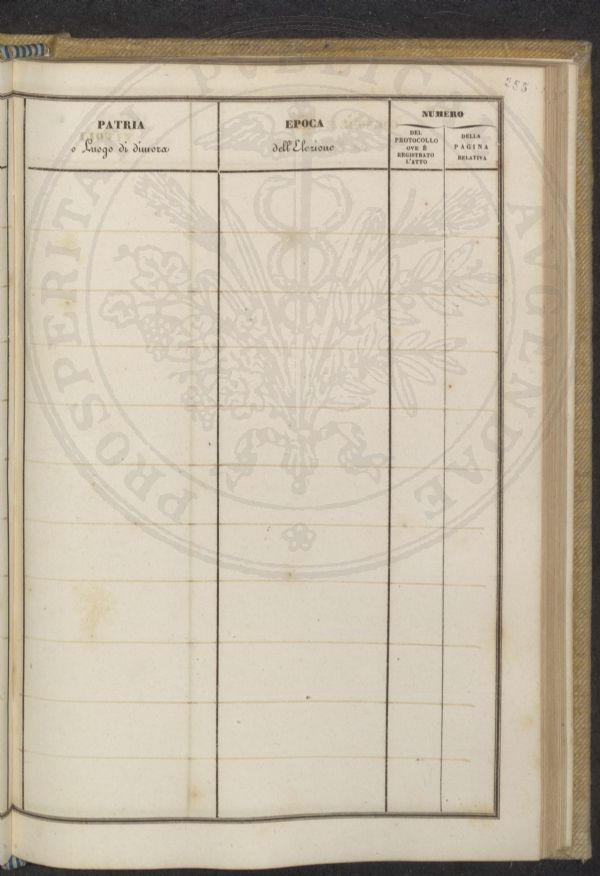 285
PATRIA
o Luogo di dimora
EPOCA
dell'Elezione
NUMERO
DEL
PROTOCOLLO
OVE È
REGISTRATO
L'ATTO
DELLA
PAGINA
RELATIVA
PROSPERITATI PVBLICAE AVGENDAE